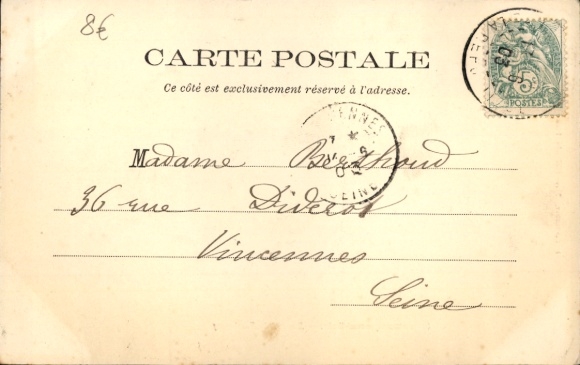 8€
CARTE POSTALE
Ce côté est exclusivement réservé à l'adresse.
Madame Berthoud
36 rue Diderot
Vincennes
Seine
5c
POSTES
03
ENNES
SEINE